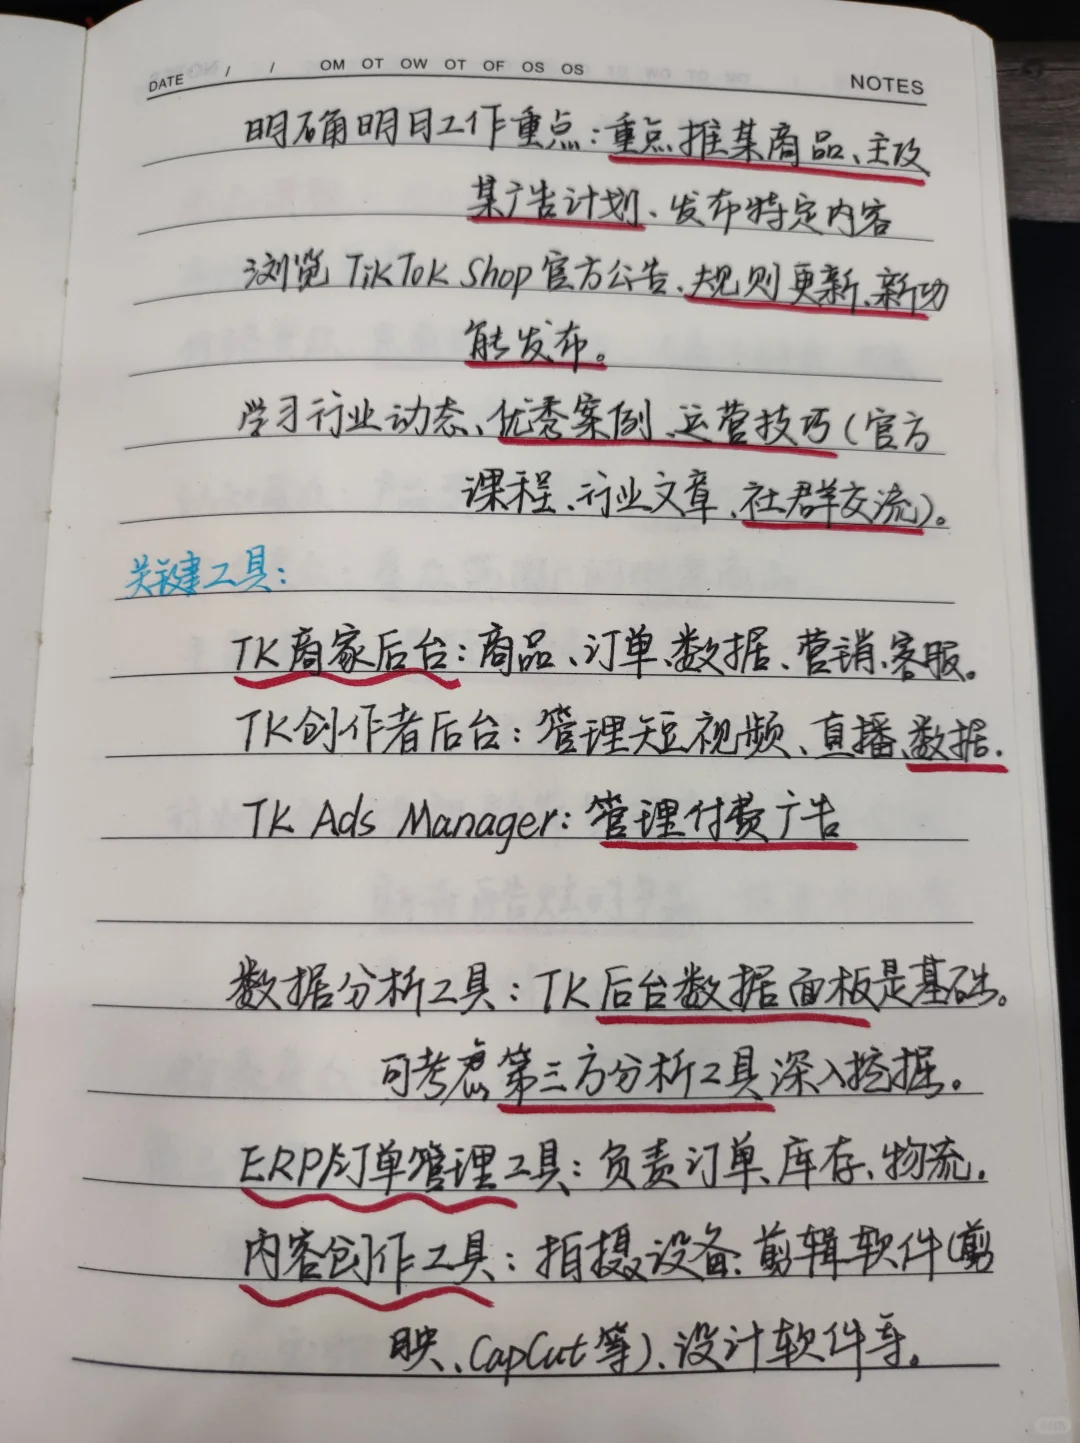 DATE / / OM OT OW OT OF OS OS NOTES
明确明日工作重点：重点推某商品、主改
某广告计划、发布特定内容
浏览 TikTok Shop 官方公告、规则更新、新功
能发布。
学习行业动态、优秀案例、运营技巧（官方
课程、行业文章、社群交流）。
关键工具：
TK商家后台：商品、订单、数据、营销、客服。
TK创作者后台：管理短视频、直播、数据.
TK Ads Manager：管理付费广告
数据分析工具：TK后台数据面板是基础。
可考虑第三方分析工具深入挖掘。
ERP/订单管理工具：负责订单、库存、物流.
内容创作工具：拍摄设备、剪辑软件（剪
映、CapCut等）、设计软件等。